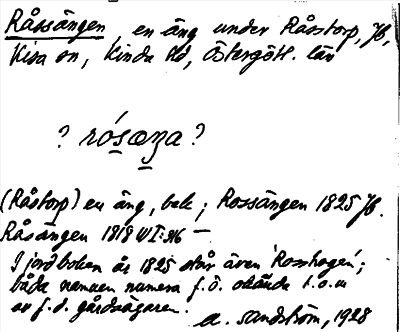 Råssängen, en äng under Råsstorp, Jb,
Kisa sn, Kinda hd, Östergötl. län
? rós̲æŋa ?
(Råstorp) en äng, bel; Rossängen 1825 Jb.
Råsängen 1818
I jordboken år 1825 står även 'Rosshagen';
båda namnen numera f.ö. okända t.o.m
av f.d. gårdsägaren.
A. Sandström, 1928